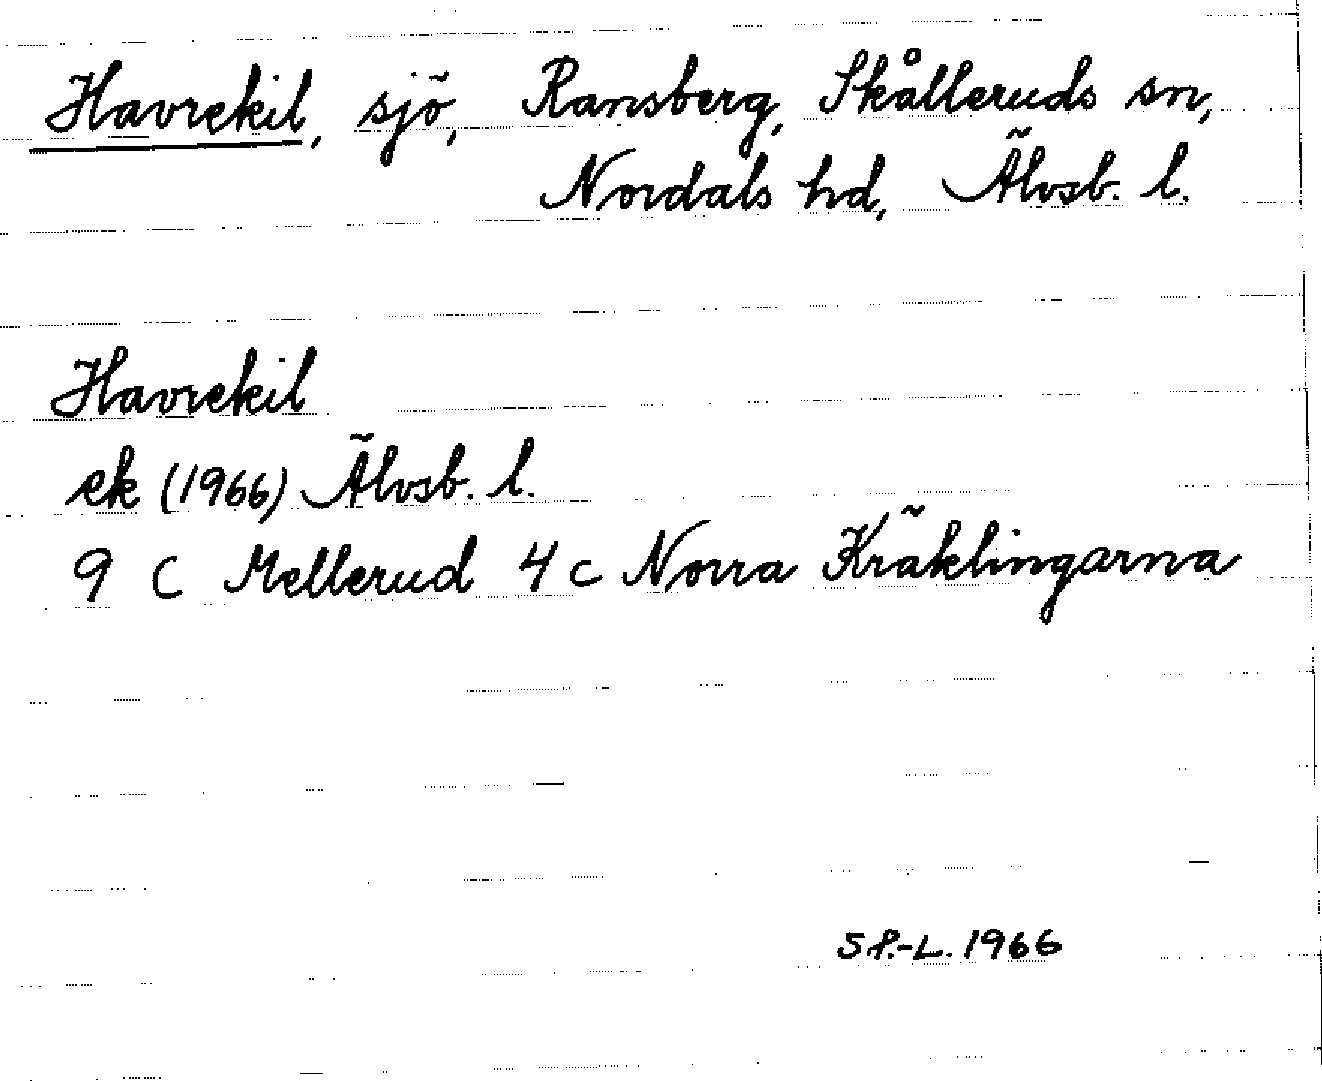 Havrekil, sjö, Ransberg, Skålleruds sn,
Nordals hd, Älvsb. l.
Havrekil
ek (1966) Älvsb. l.
9 C Mellerud 4 c Norra Kräklingarna
S P.-L. 1966